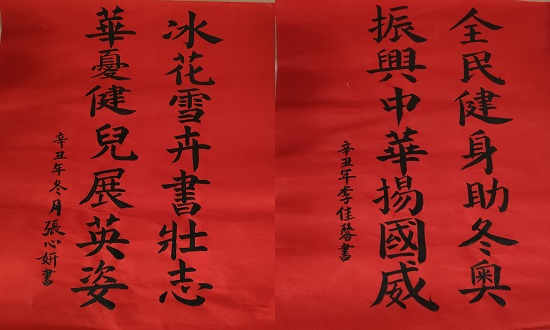 冰花雪卉書壯志
華憂健兒展英姿
辛丑年冬月張心妍書
全民健身助冬奧
振興中華揚國威
辛丑年李佳馨書